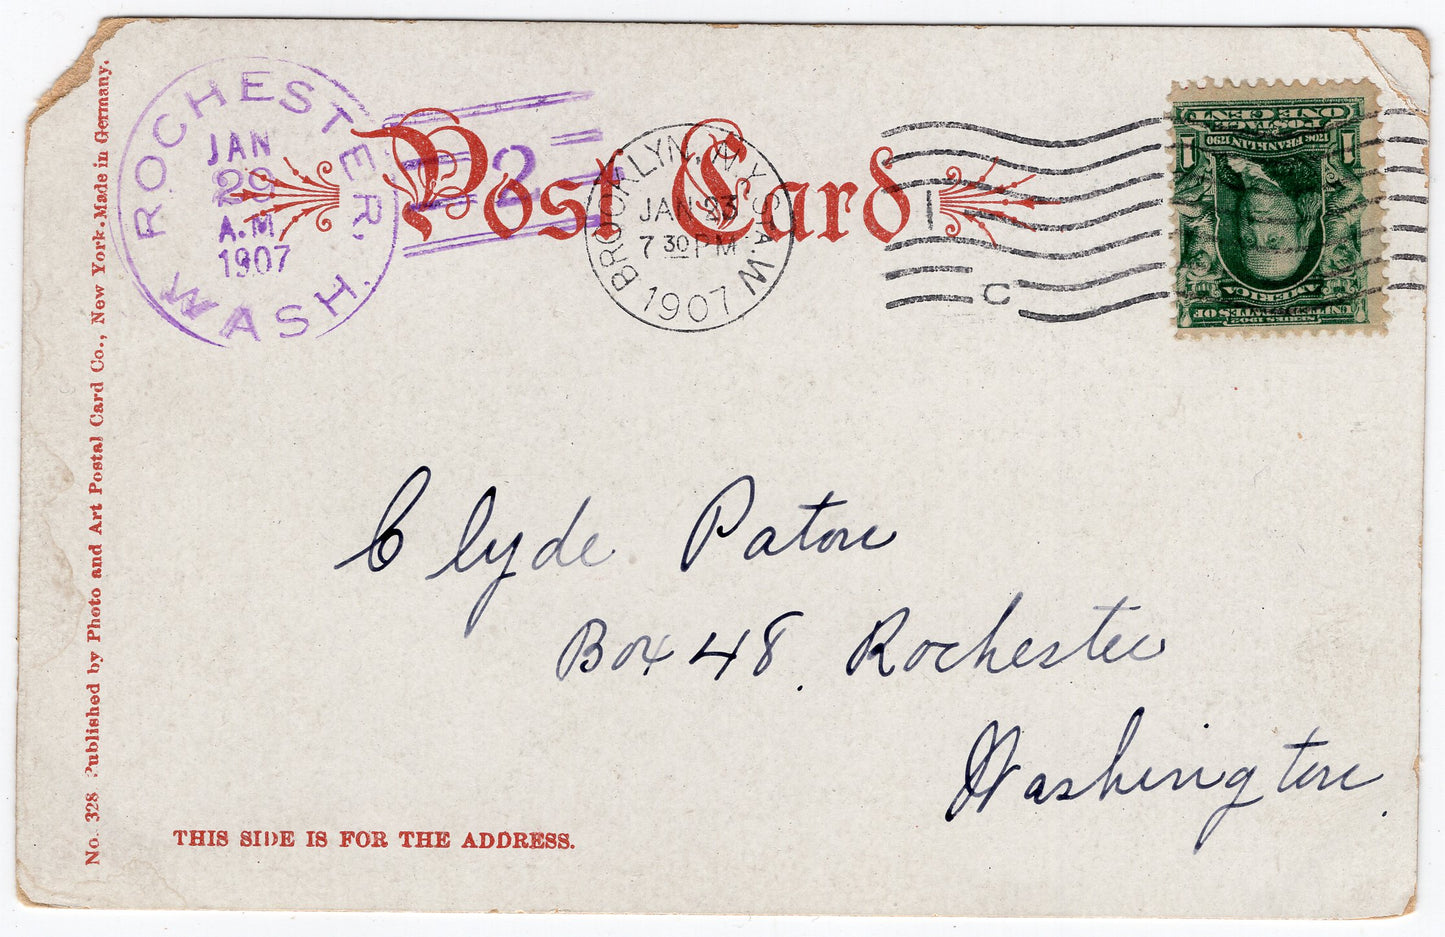 ROCHESTER,
WASH.
JAN
29
A.M.
1907
2
Post Card
BROOKLYN, N.Y. STA. W
JAN 23
7 30 PM
1907
1
C
ONE CENT
POSTAGE
1706 FRANKLIN 1790
1 1
AMERICA
SERIES 1902
UNITED STATES OF
Clyde Paton
Box 48. Rochester
Washington.
THIS SIDE IS FOR THE ADDRESS.
No. 328 Published by Photo and Art Postal Card Co., New York. Made in Germany.